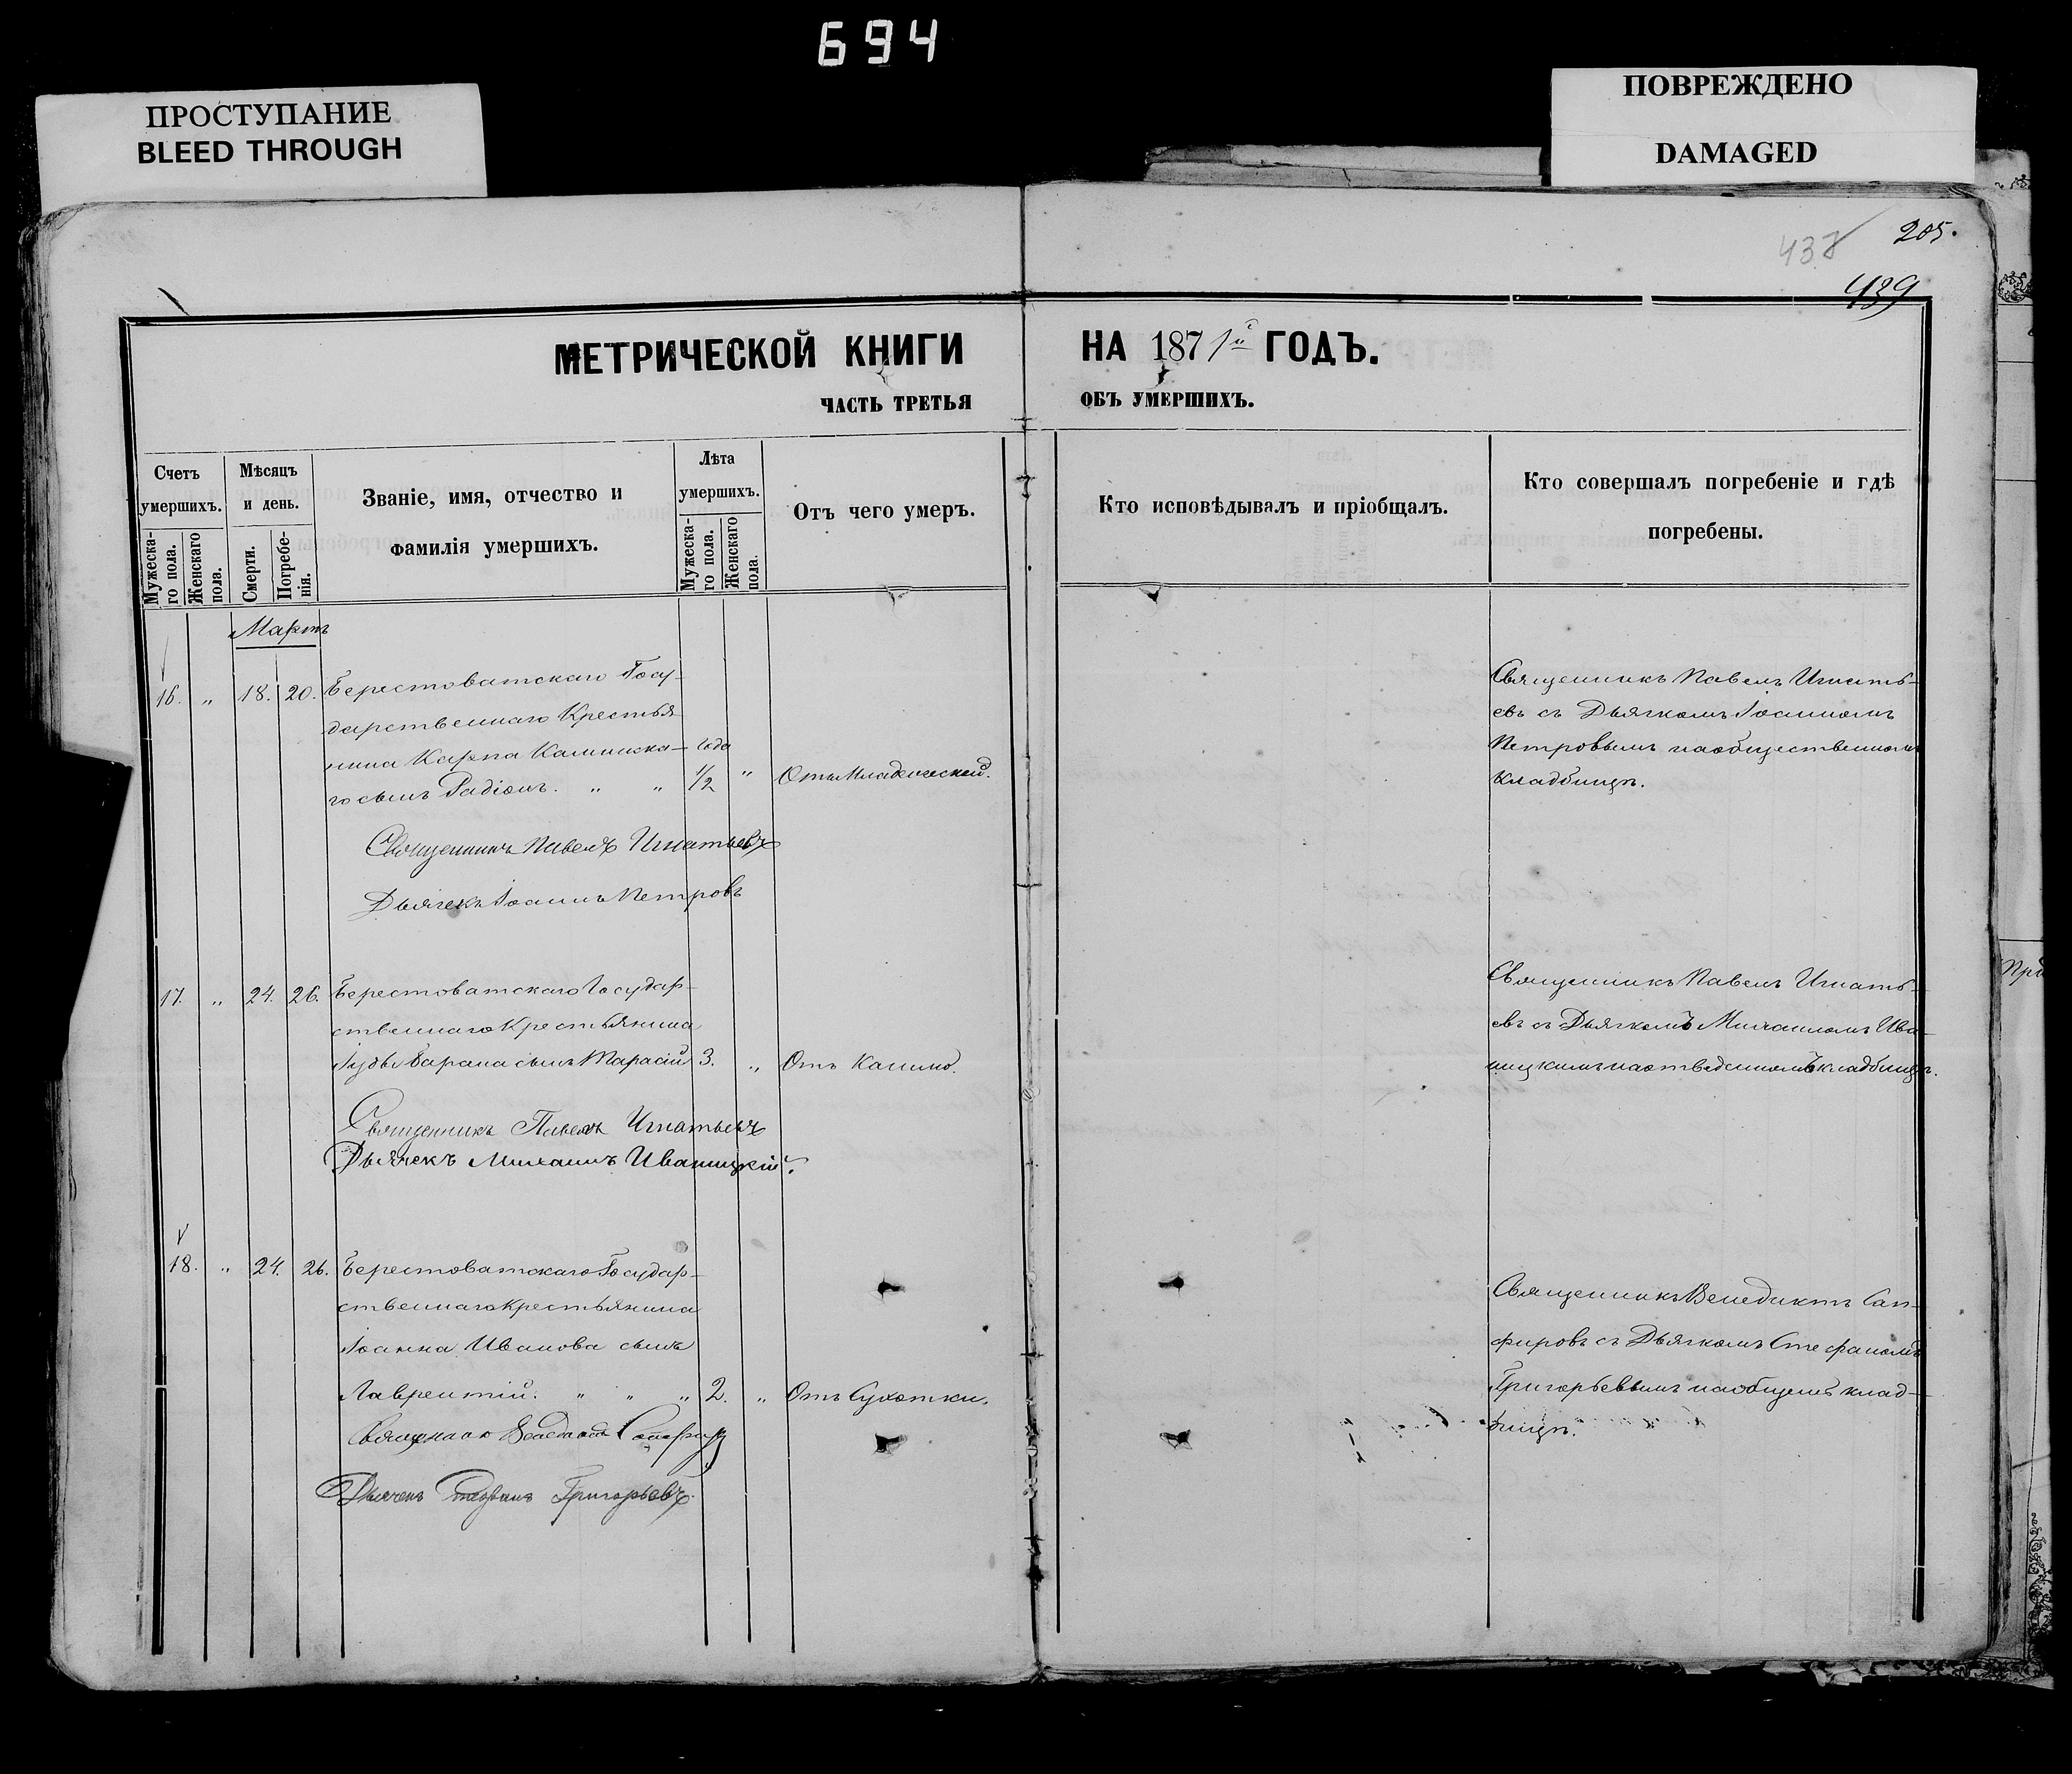 694
ПРОСТУПАНИЕ
BLEED THROUGH
ПОВРЕЖДЕНО
DAMAGED
438
205.
439
МЕТРИЧЕСКОЙ КНИГИ НА 1871й ГОДЪ.
ЧАСТЬ ТРЕТЬЯ ОБЪ УМЕРШИХЪ.
Счетъ умершихъ.
Мужеска-
го пола.
Женскаго
пола.
Мѣсяцъ
и день.
Смерти.
Погребе-
нія.
Званіе, имя, отчество и
фамилія умершихъ.
Лѣта
умершихъ.
Мужеска-
го пола.
Женскаго
пола.
Отъ чего умеръ.
Кто исповѣдывалъ и пріобщалъ.
Кто совершалъ погребеніе и гдѣ
погребены.
Мартъ
16. " 18. 20. Берестоватскаго Госу-
дарственнаго Крестья
нина Карпа Калинска- года
го сынъ Радіонъ. " " 1/2 " Отъ Младенческой.
Священникъ Павелъ Игнать-
евъ съ Дьячкомъ Іоанномъ
Петровымъ наобщественномъ
кладбищѣ.
Священникъ Павелъ Игнатьевъ
Дьячекъ Іоаннъ Петровъ
17. " 24. 26. Берестоватскаго Государ-
ственнаго Крестьянина
Іуды Барана сынъ Тарасій 3. " Отъ Кашлю.
Священникъ Павелъ Игнать-
евъ съ Дьячкомъ Михаиломъ Ива-
ницкимъ наотведенномъ кладбищѣ.
Священникъ Павелъ Игнатьевъ
Дьячекъ Михаилъ Иваницкій.
18. " 24. 26. Берестоватскаго Государ-
ственнаго Крестьянина
Іоанна Иванова сынъ
Лаврентій. " " " 2. " Отъ Сухотки.
Священникъ Венедиктъ Сап-
фировъ съ Дьячкомъ Стефаномъ
Григорьевымъ наобщемъ клад-
бищѣ.
Священникъ Венедиктъ Сапфир
Дьячекъ Стефанъ Григорьевъ.